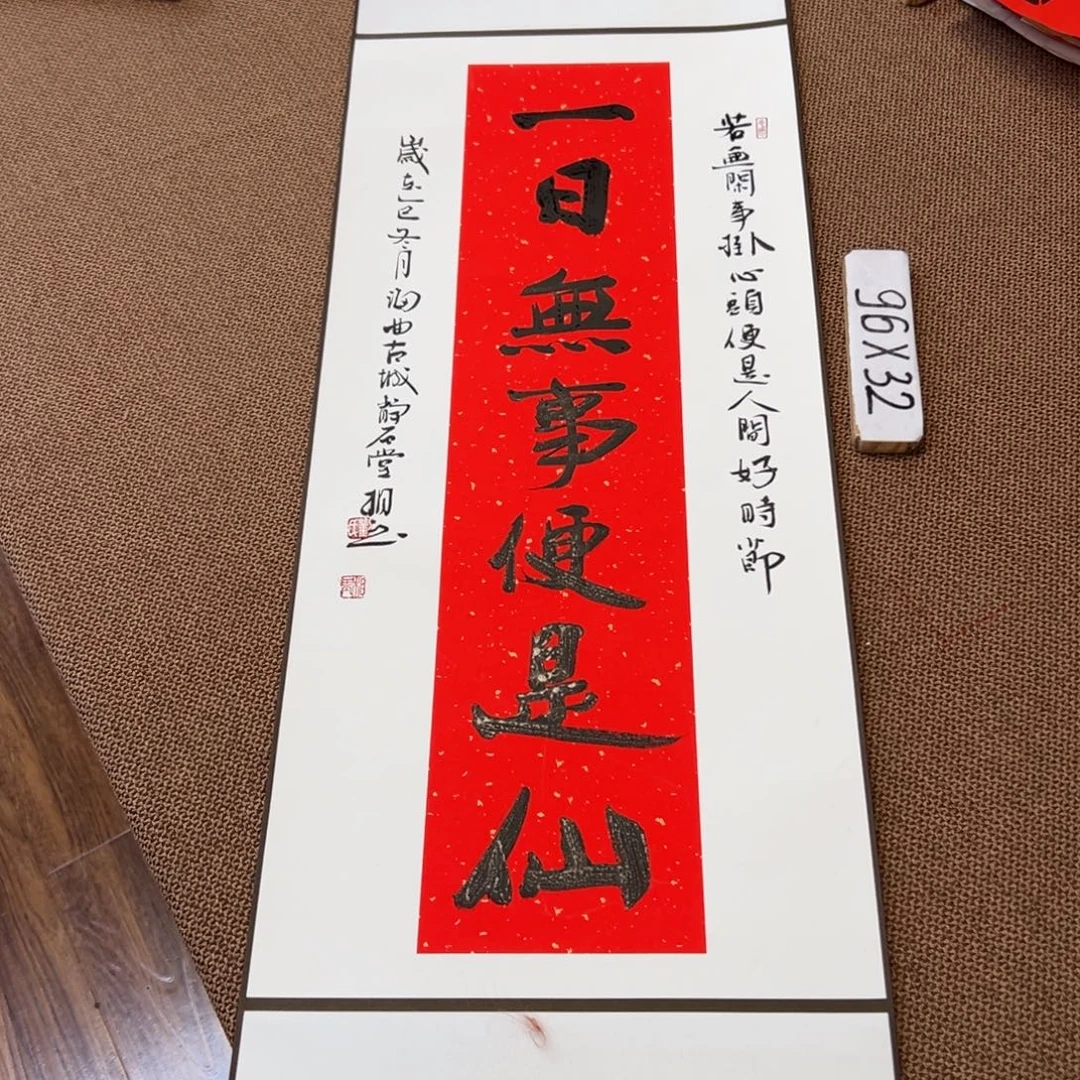 若無閑事掛心頭便是人間好時節
一日無事便是仙
歲在乙巳冬月洄曲古城静石堂
96X32